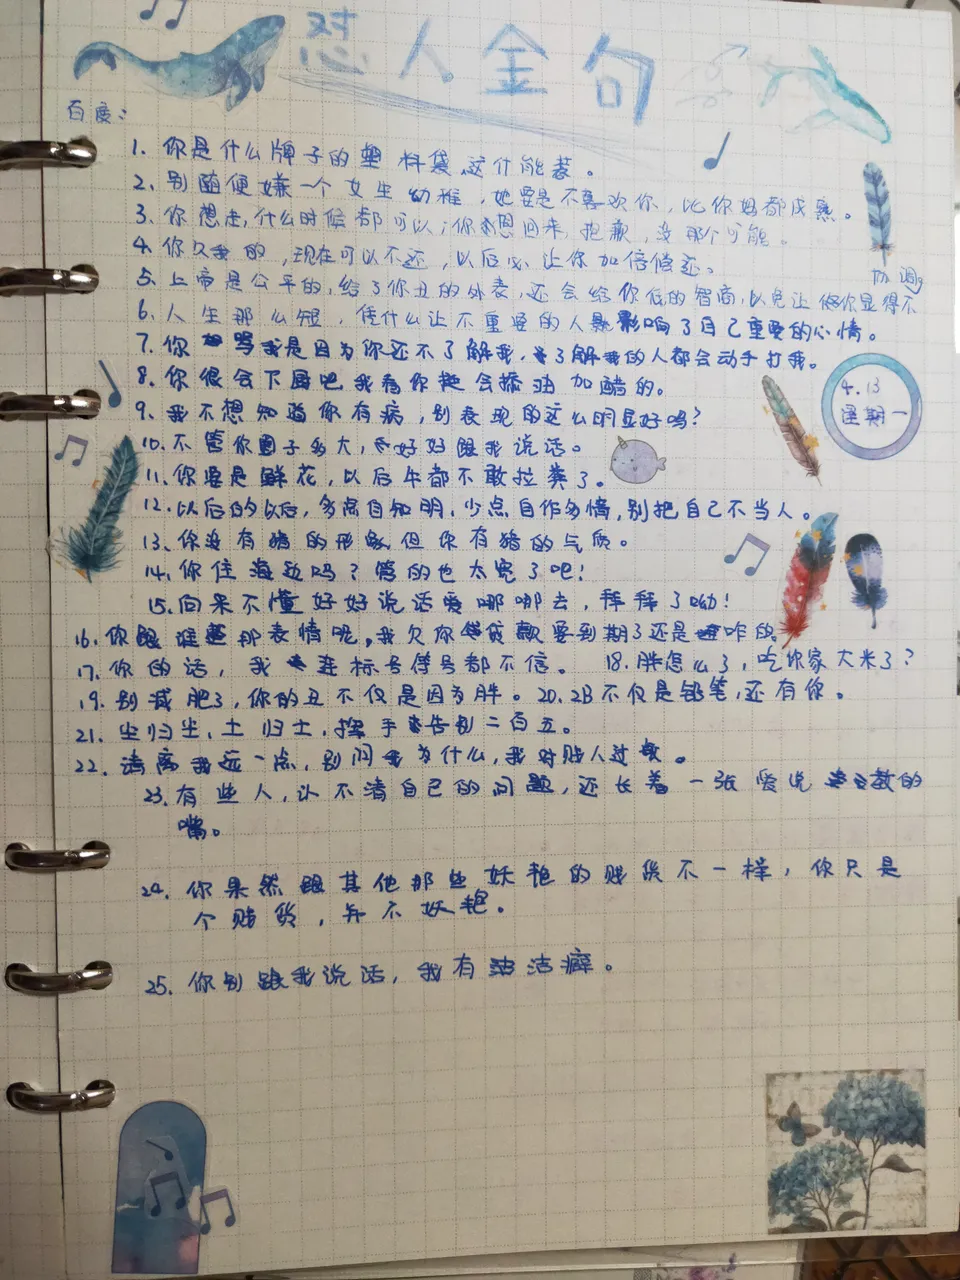 怼人金句
百度:
1. 你是什么牌子的塑料袋,这什能装。
2. 别随便嫌一个女生幼稚,她要是不喜欢你,比你妈都成熟。
3. 你想走,什么时候都可以;你想回来,抱歉,没那个可能。
4. 你欠我的,现在可以不还,以后必让你加倍偿还。
协调
5. 上帝是公平的,给了你丑的外表,还会给你低的智商,以免让你显得不
6. 人生那么短,凭什么让不重要的人影响了自己重要的心情。
7. 你骂我是因为你还不了解我,了解我的人都会动手打我。
8. 你很会下厨吧我看你挺会添油加醋的。
4.13
星期一
9. 我不想知道你有病,别表现的这么明显好吗?
10. 不管你圈子多大,好好跟我说话。
11. 你要是鲜花,以后牛都不敢拉粪了。
12. 以后的以后,多点自知明,少点自作多情,别把自己不当人。
13. 你没有猪的形象但你有猪的气质。
14. 你住海边吗?管的也太宽了吧!
15. 回来不懂好好说话爱哪哪去,拜拜了呦!
16. 你跟谁那表情呢,我欠你贷款要到期了还是咋的
17. 你的话,我连标号停号都不信。 18. 胖怎么了,吃你家大米了?
19. 别减肥了,你的丑不仅是因为胖。 20. 2B不仅是铅笔,还有你。
21. 尘归尘,土归土,挥手告别二百五。
22. 请离我远一点,别问我为什么,我对贱人过敏。
23. 有些人,认不清自己的问题,还长着一张爱说教的
嘴。
24. 你果然跟其他那些妖艳的贱货不一样,你只是
个贱货,并不妖艳。
25. 你别跟我说话,我有洁癖。